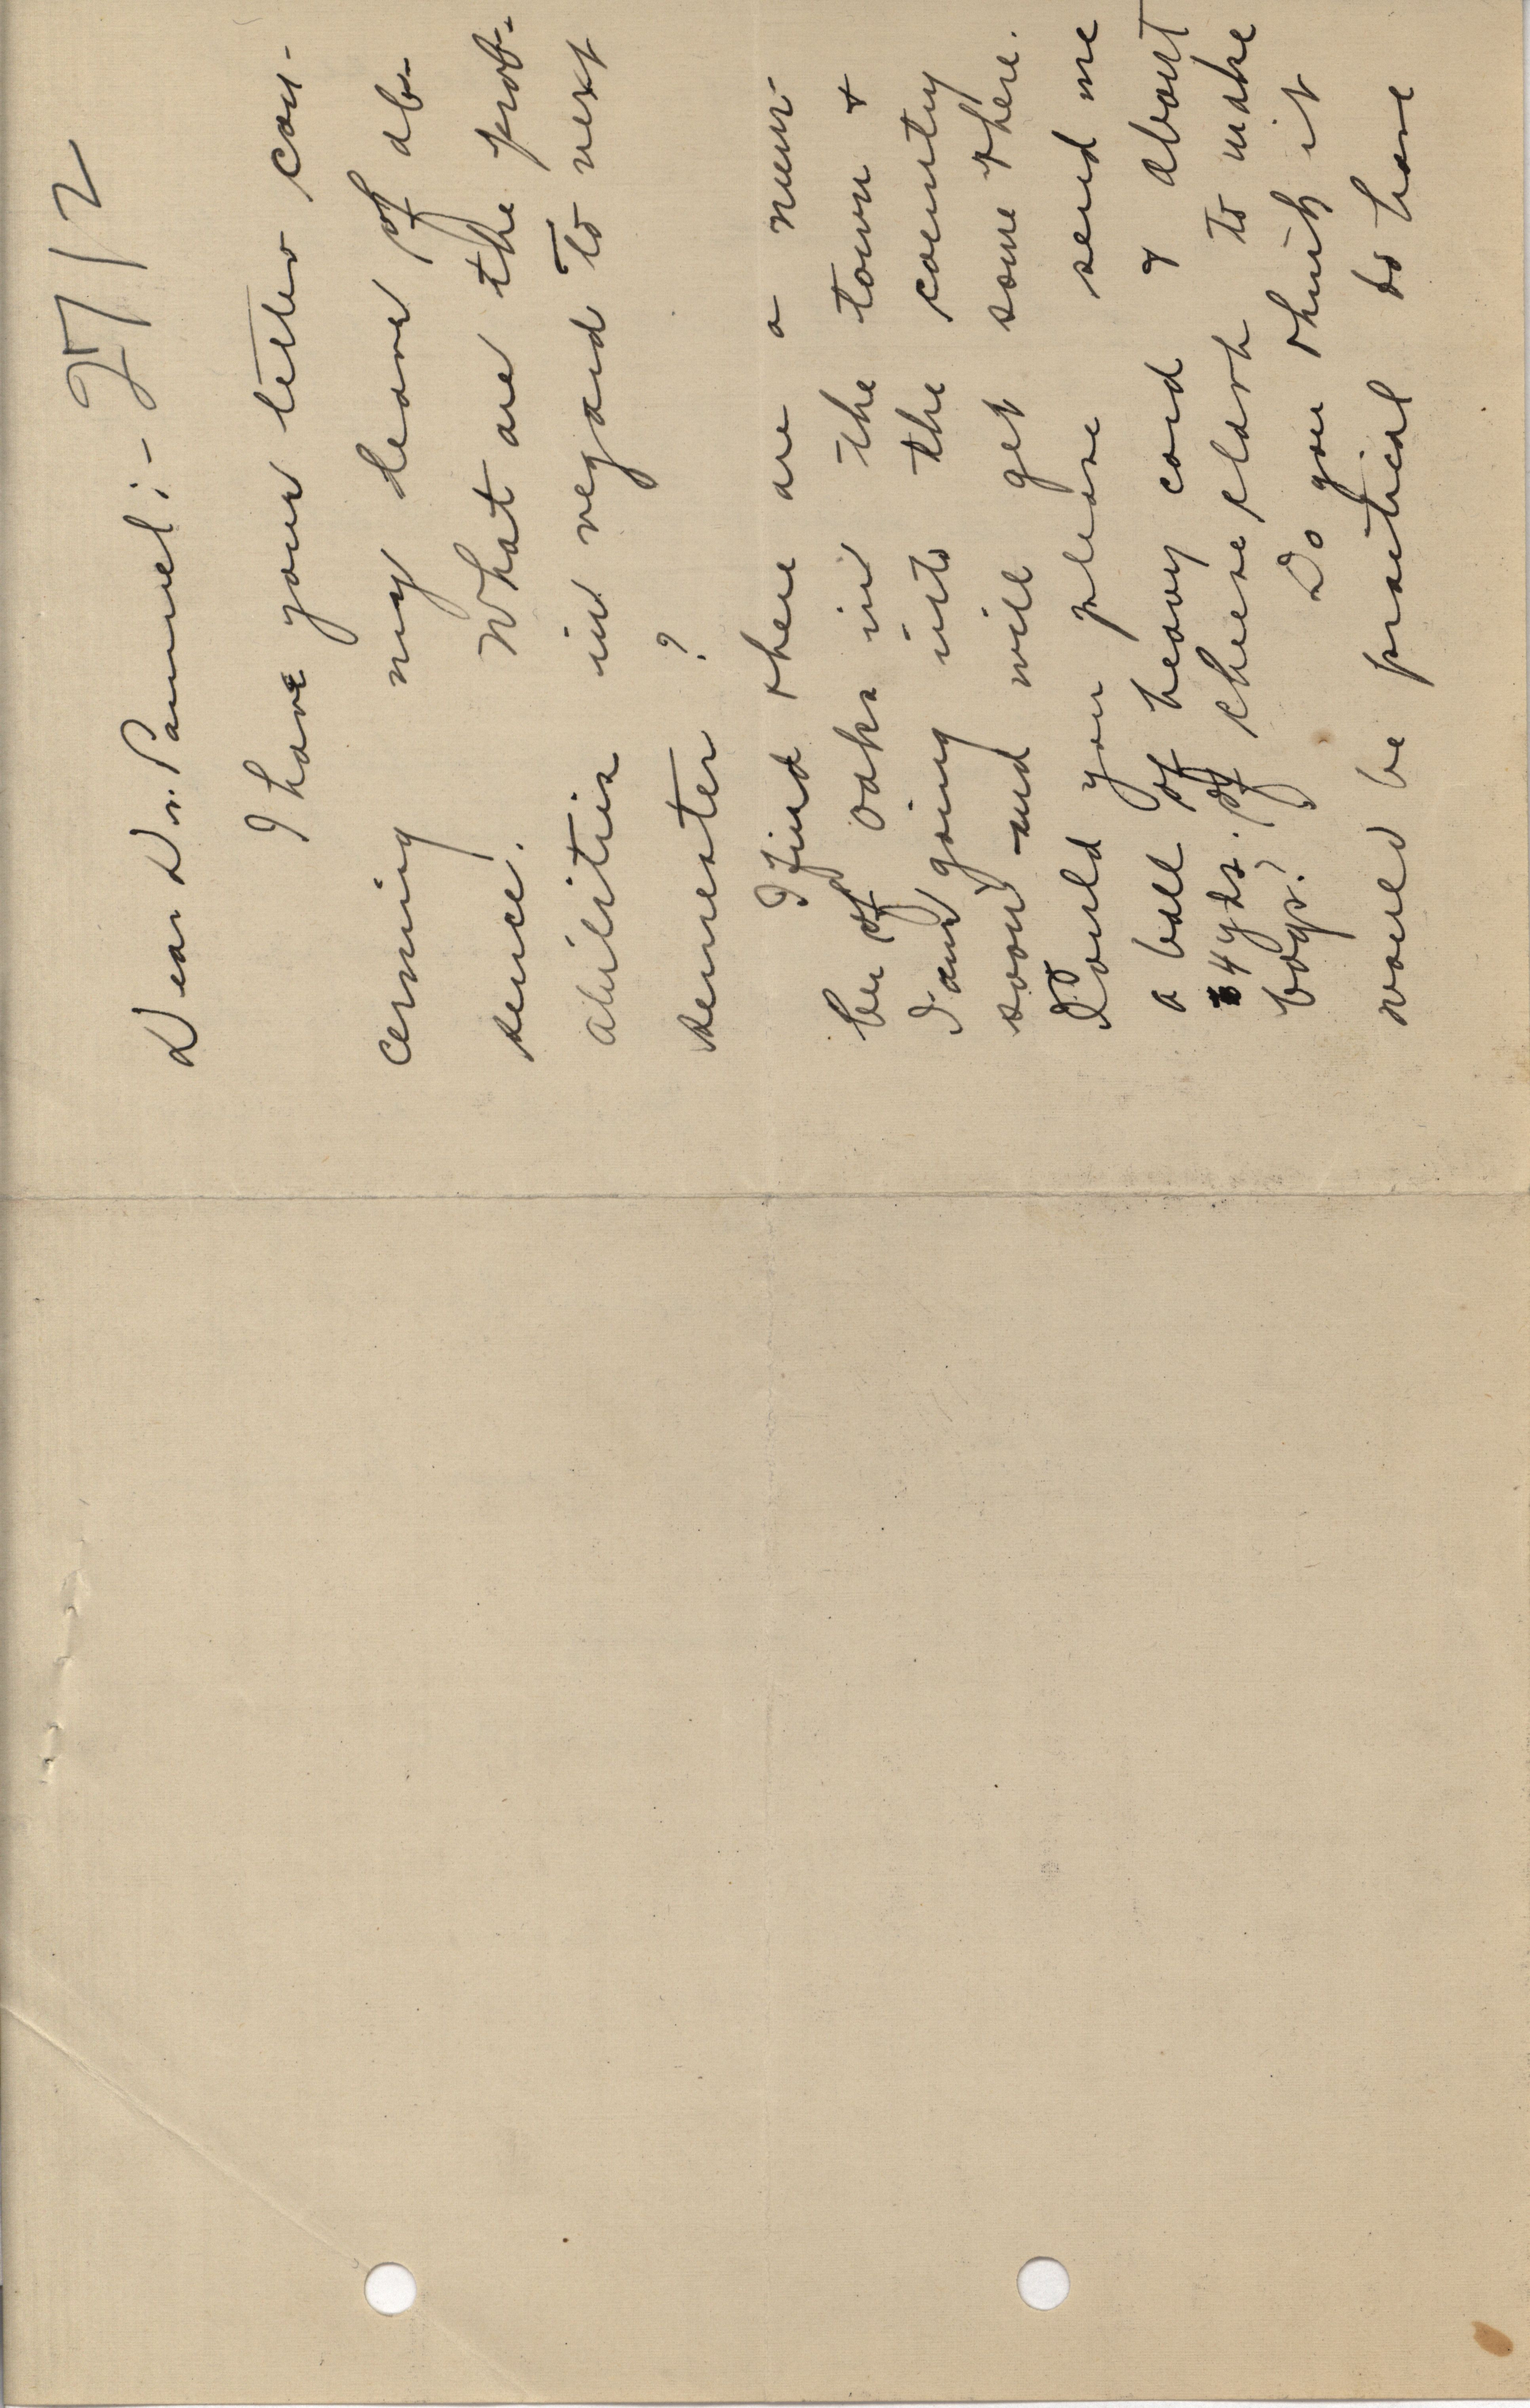 2712
Dear Dr. Pammel:-
I have your letter con-
cerning my leave of ab-
sence. What are the prob-
abilities in regard to next
semester?
I find there are a num-
ber of oaks in the town &
I am going into the country
soon and will get some there.
Could you please send me
a ball of heavy cord & about
4 yds. of cheese cloth to make
bags? Do you think it
would be practical to have